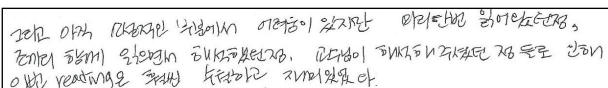 그리고 아직 전체적인 부분에서 어려움이 있지만 미리 한번 읽어왔던점,
조끼리 함께 읽으면서 해석했던점, 교수님이 해석해주셨던 점 들로 인해
이번 reading은 훨씬 수월하고 재미있었다.